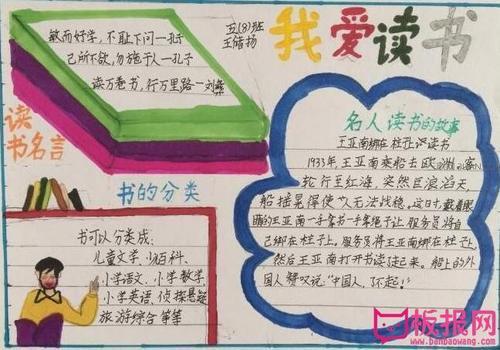 我爱读书
五(8)班
敏而好学,不耻下问一孔子
己所不欲,勿施于人一孔子
读万卷书,行万里路一刘彝
读
书名言
书的分类
书可以分类成:
儿童文学、少儿百科、
小学语文、小学数学、
小学英语、侦探悬疑
旅游综合等等
名人读书的故事
王亚南绑在柱子上读书
1933年,王亚南乘船去欧洲。客
轮行至红海,突然巨浪滔天,
船摇晃得使人无法站稳,这日寸,戴着眼
镜的王亚南一手拿书一手
让服务员将自
己绑在柱子上,服务员将王亚南绑在柱子上,
然后王亚南打开书读起来。船上的外
国人赞叹说:“中国人,了不起!”
板报网
www.banbaowang.com